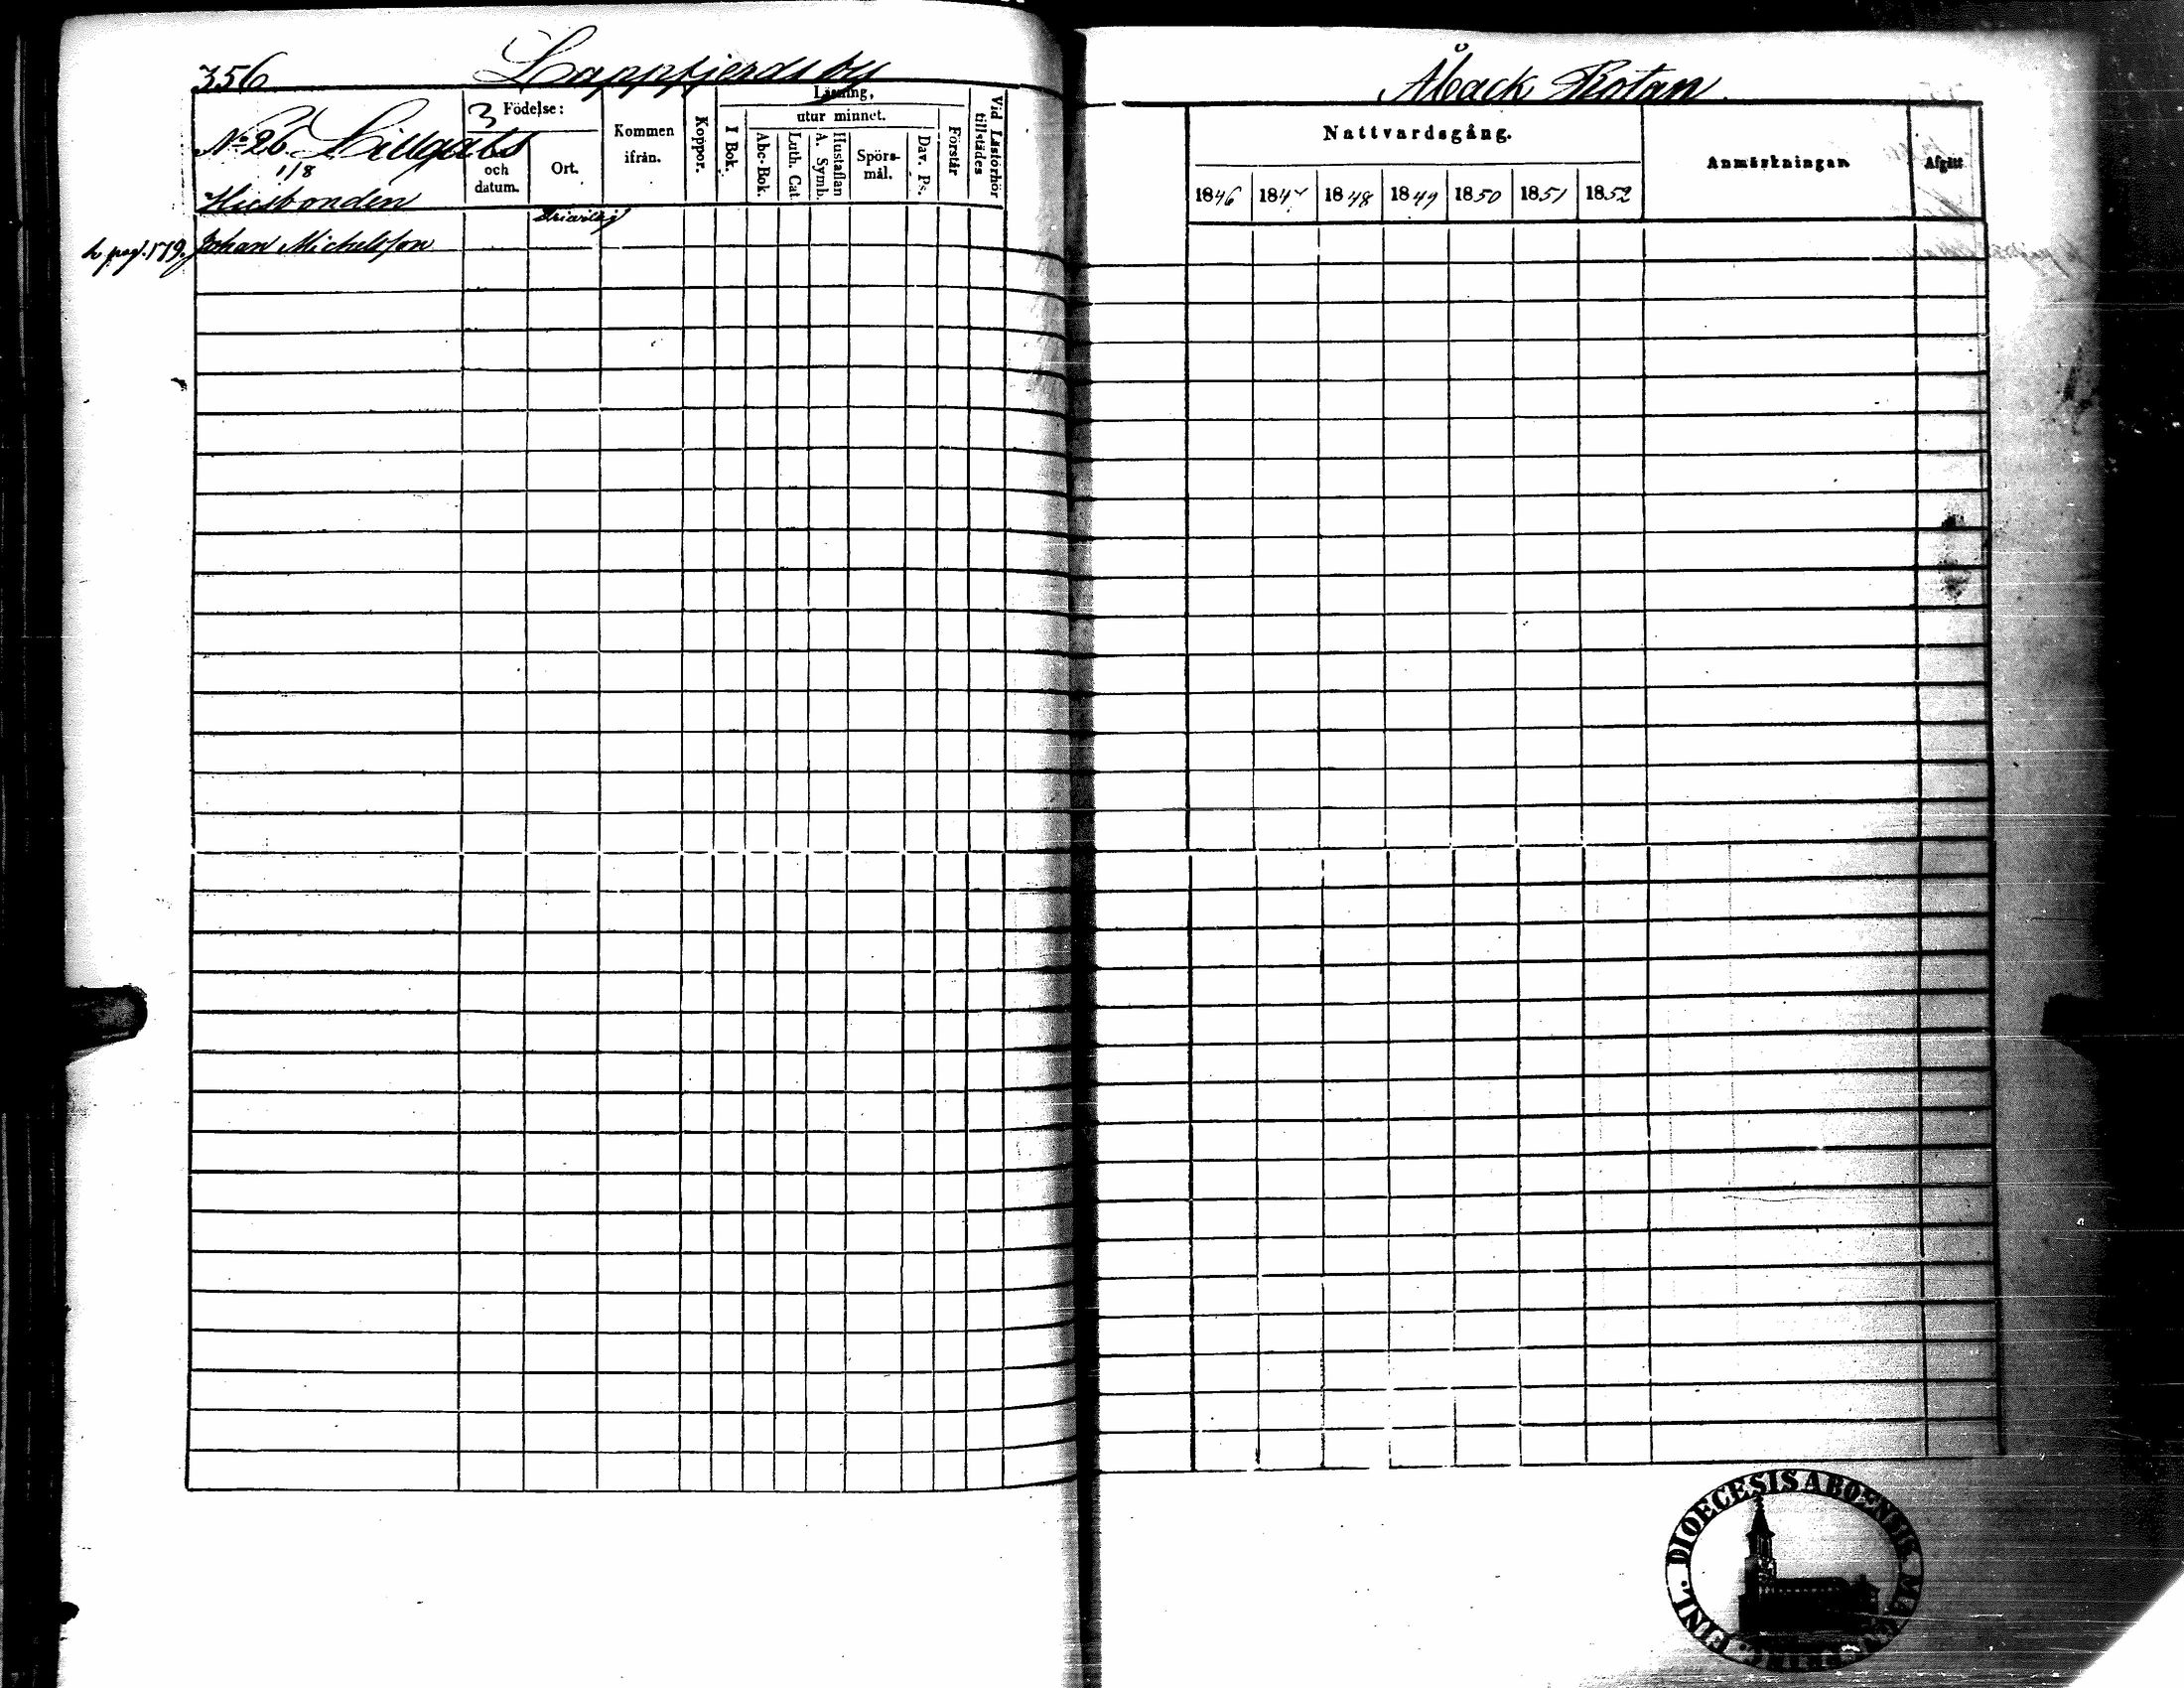 356
Lappfjerdsby
Åback Rotan
Nº 26 Lillgäbs 3
1/8
Födelse:
och datum.
Ort.
Kommen ifrån.
Koppor.
Läsning,
I Bok.
utur minnet.
Abc-Bok.
Luth. Cat.
Hustaflan A. Symb.
Spörs-mål.
Dav. Ps.
Förstår
Vid Läsförhör tillstädes
Husbonden
pag. 179. Johan Michelsson
Nattvardsgång.
1846 1847 1848 1849 1850 1851 1852
Anmärkningan
Afgått
FINL. DIOECESIS ABOENSIS